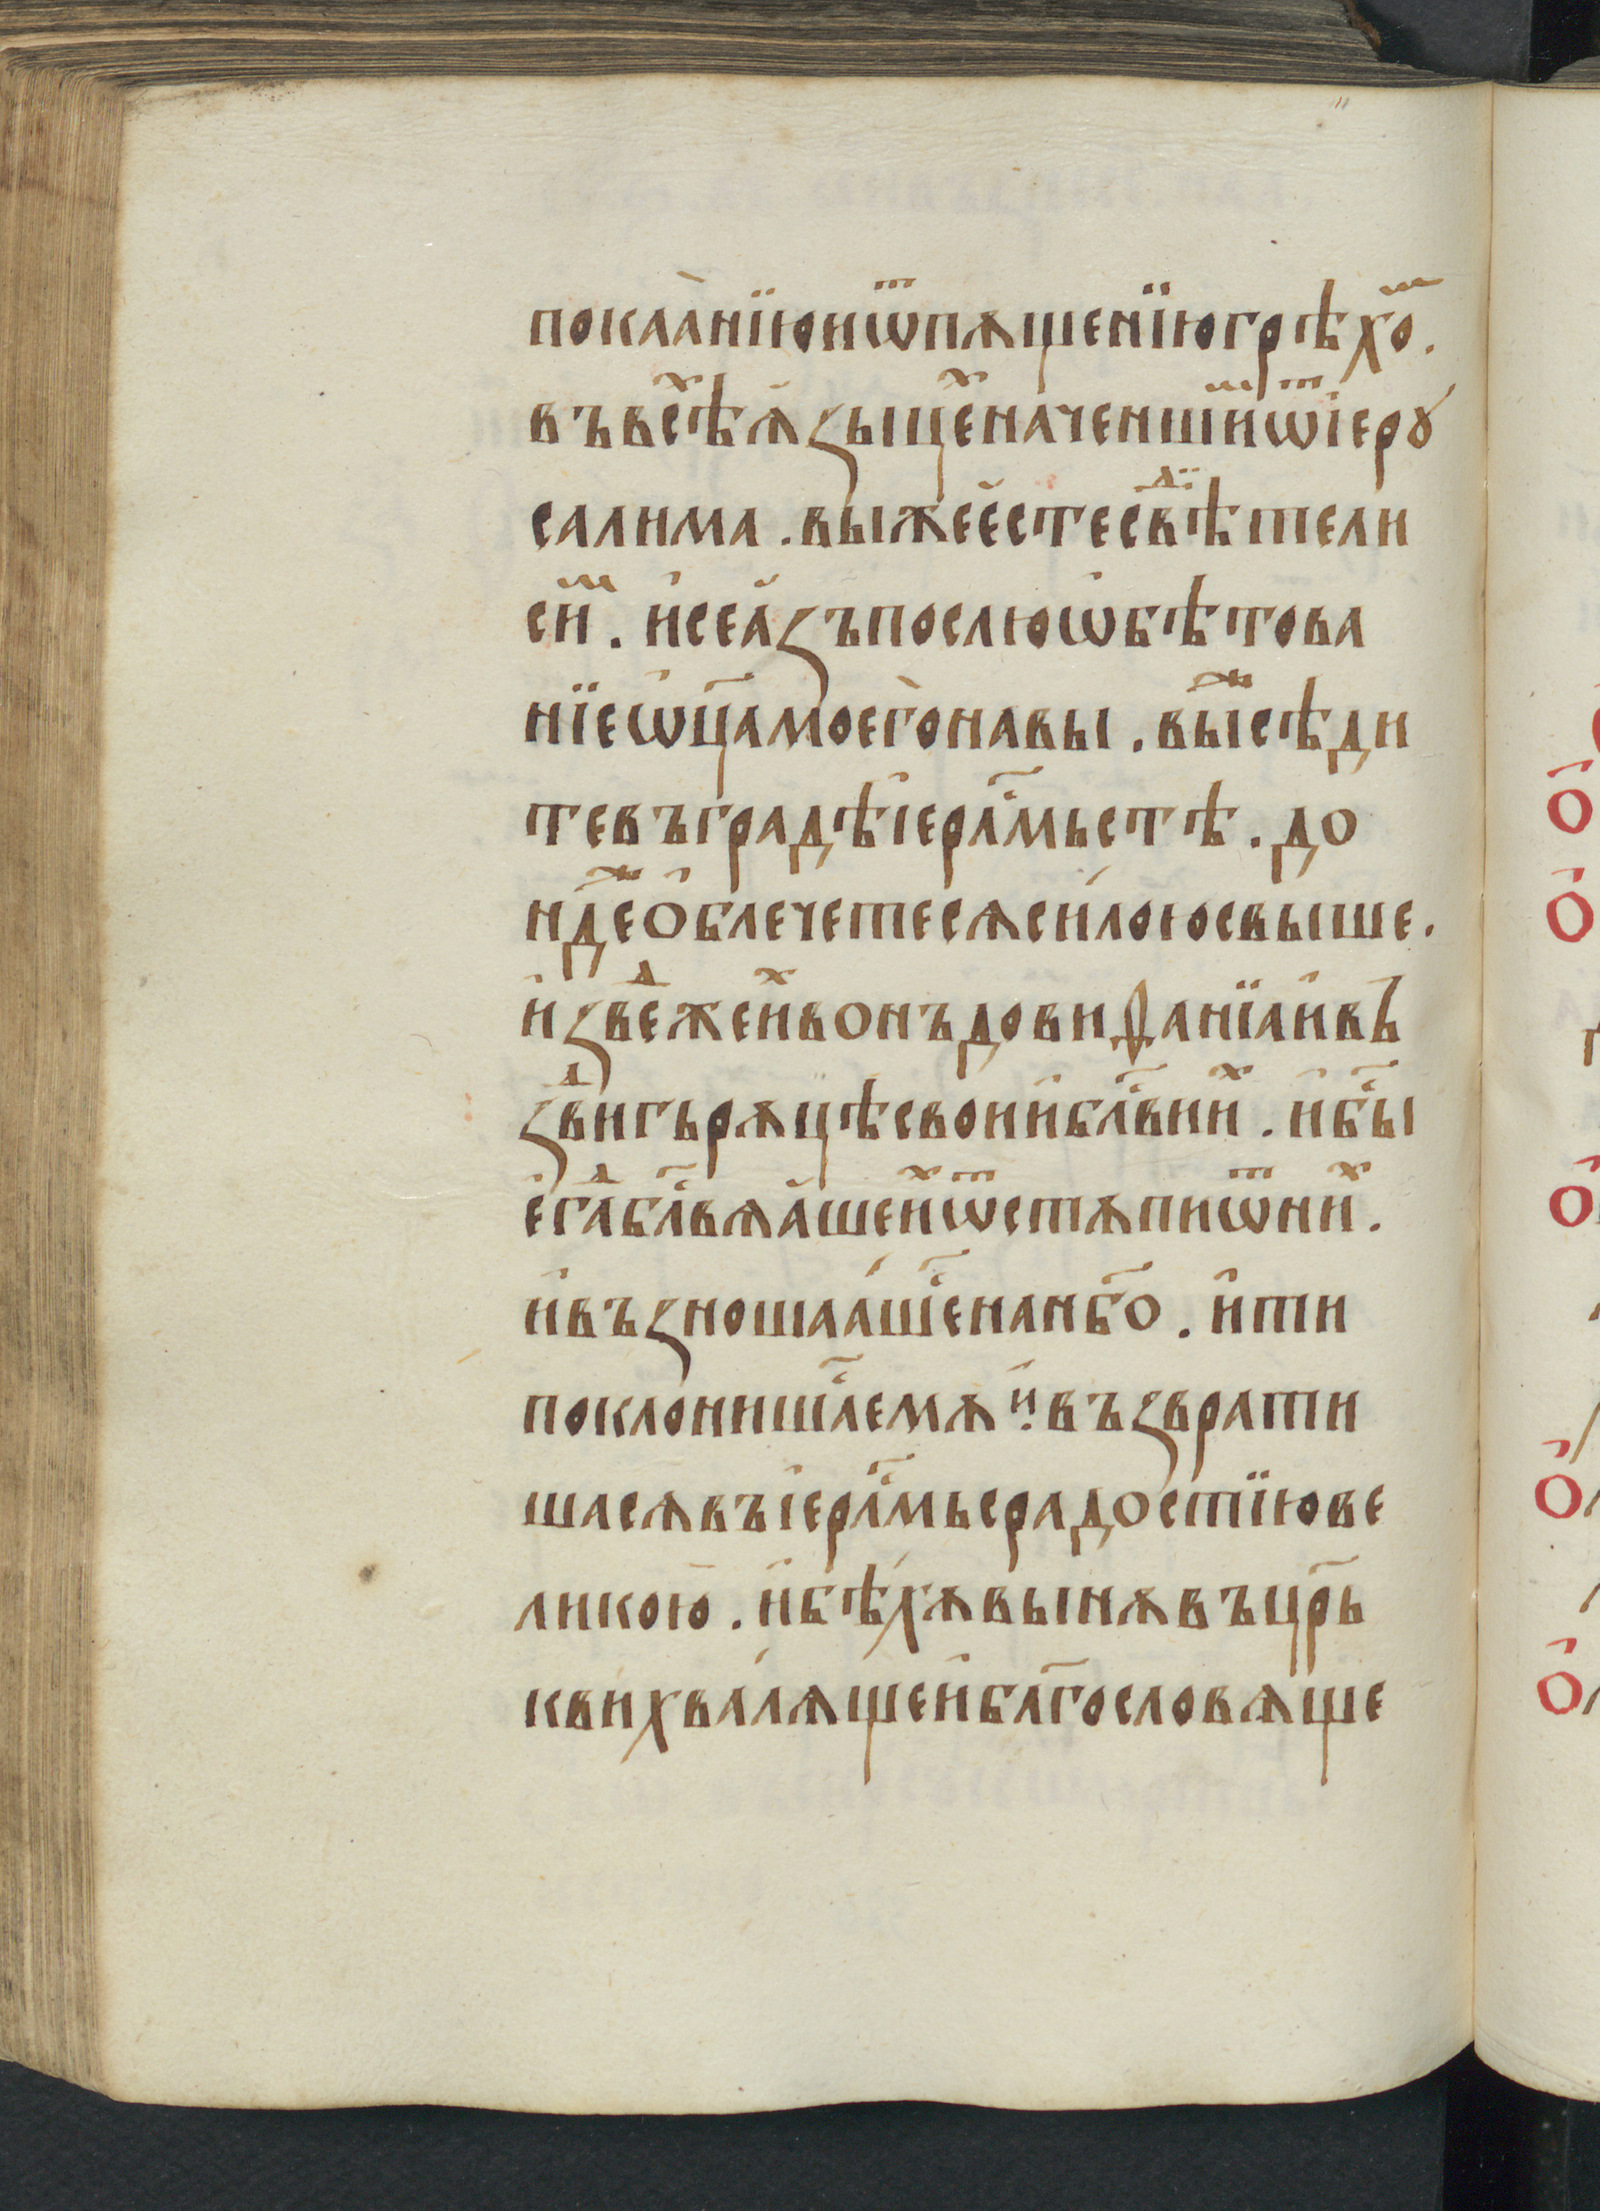 покаанїюиѿпѫщенїюгрѣхоⷨ.
въвсѣⷯѧ̓ꙁыцеⷯначеншиⷨѿіерꙋ
салима.выжеестесвⷣѣтели
сиⷨ.и҆сеа҆ꙁъпослюѡ҆бѣтова
нїеѡ҆ц҃амоегѝонавы.выⷤсѣди
тевъградѣі҆ерⷭ҇лⷨ҇ьстѣ.до
нⷣежео҆блечетесѧси́лоюсвыше.
и҆ꙁвеⷣжеиⷯвонъдовиѳанїаи҆въ
ꙁⷣвигьрѫцѣсвоии҆блⷭ҇виⷯи.и҆бⷭ҇ы
е҆гⷣаблⷭ҇вѣа҆шеиⷯѿстѫпиѿниⷯ.
и҆въꙁношаа҆шесѧнанб҃о.и҆ти
поклонишⷭ҇ѧемѫи҆въꙁврати
шасѧвъі҆ерⷭ҇лмьсрадостїюве
ликою.и҆бѣхѫвынѫвъцр҃ь
квихва́лѧщеи҆блг҃ословѧще